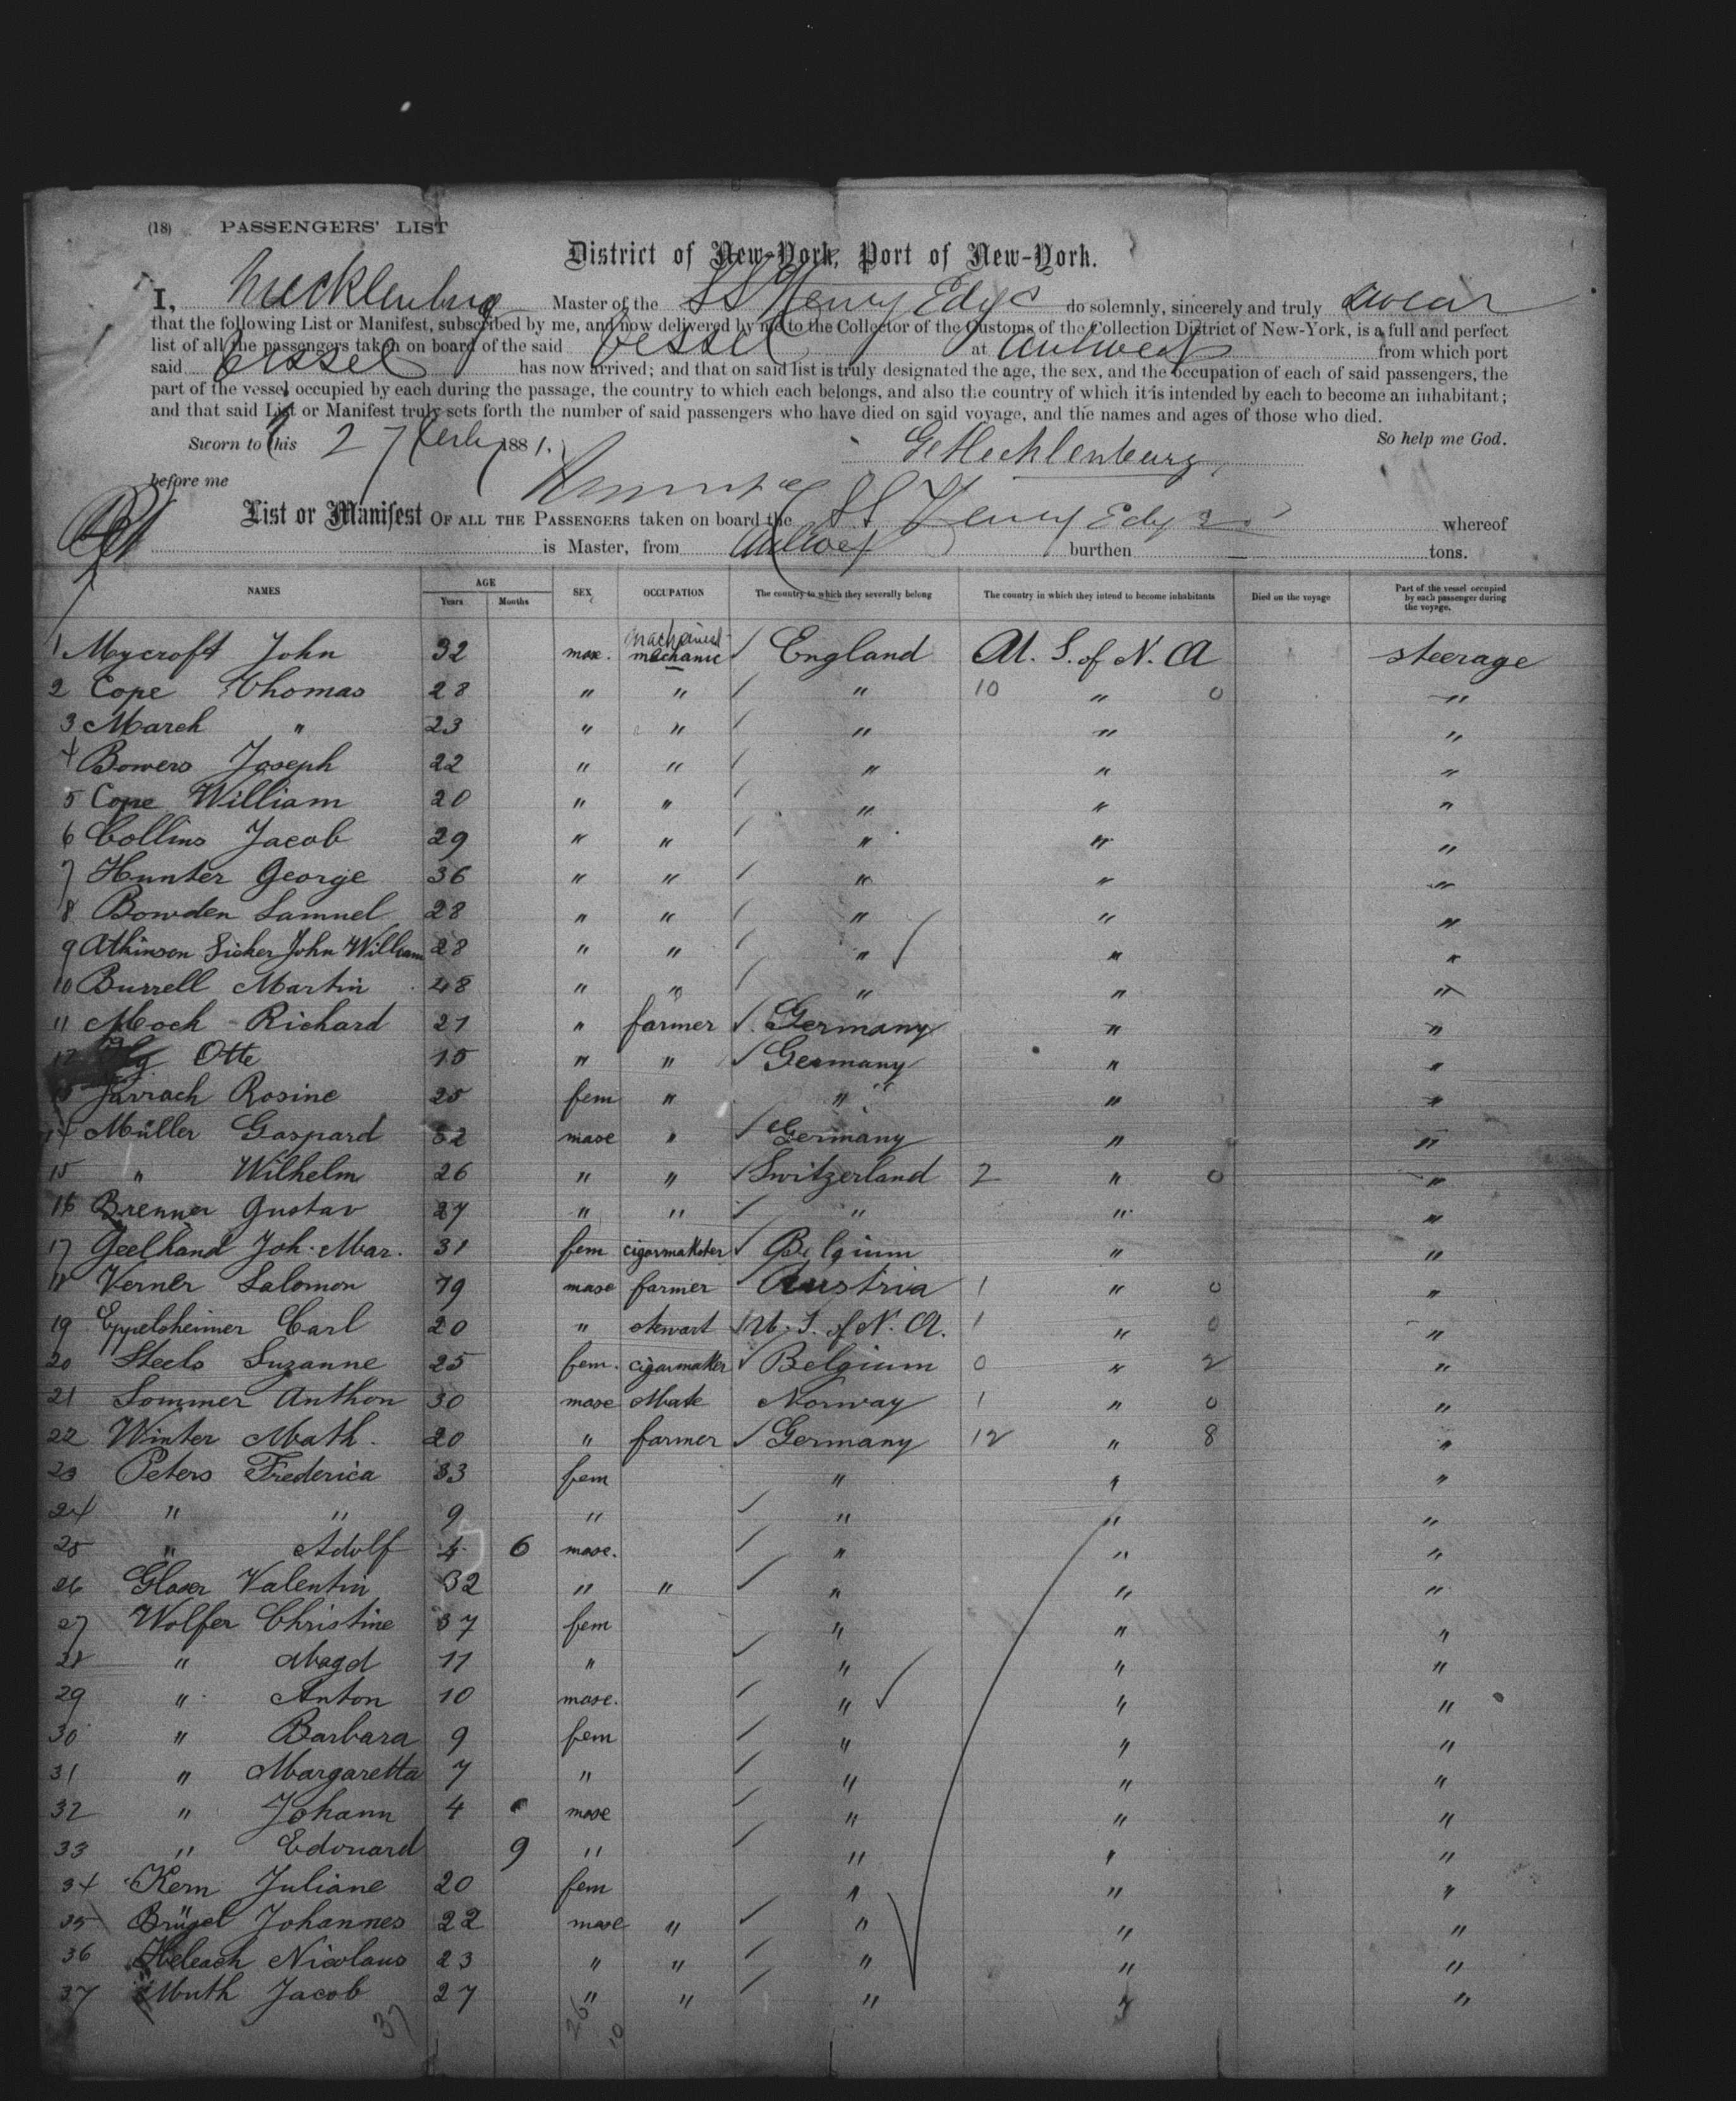 (18) PASSENGERS' LIST
District of New-York, Port of New-York.
I, Mecklenburg Master of the SS Henry Edye do solemnly, sincerely and truly swear
that the following List or Manifest, subscribed by me, and now delivered by me to the Collector of the Customs of the Collection District of New-York, is a full and perfect
list of all the passengers taken on board of the said Vessel at Antwerp from which port
said Vessel has now arrived; and that on said list is truly designated the age, the sex, and the occupation of each of said passengers, the
part of the vessel occupied by each during the passage, the country to which each belongs, and also the country of which it is intended by each to become an inhabitant;
and that said List or Manifest truly sets forth the number of said passengers who have died on said voyage, and the names and ages of those who died.
Sworn to this 27 1881. So help me God.
G Mecklenburg
before me
List or Manifest OF ALL THE PASSENGERS taken on board the SS Henry Edye whereof
is Master, from Antwerp burthen tons.
NAMES AGE Years Months SEX OCCUPATION The country to which they severally belong The country in which they intend to become inhabitants Died on the voyage Part of the vessel occupied by each passenger during the voyage.
machinist
1 Mycroft John 32 masc. mechanic ✓ England U. S. of N. A steerage
2 Cope Thomas 28 " " ✓ " 10 " 0 "
3 March " 23 " " ✓ " " "
4 Bowers Joseph 22 " " ✓ " " "
5 Cope William 20 " " ✓ " " "
6 Collins Jacob 29 " " ✓ " " "
7 Hunter George 36 " " ✓ " " "
8 Bowden Samuel 28 " " ✓ " " "
9 Atkinson John William 28 " " ✓ " ✓ " "
10 Burrell Martin 48 " " ✓ " " "
11 Moch Richard 21 " farmer ✓ Germany " "
12 Otto 15 " " ✓ Germany " "
13 Jarrach Rosine 25 fem " " " "
14 Müller Gaspard 52 masc " ✓ Germany " "
15 " Wilhelm 26 " " ✓ Switzerland 2 " 0 "
16 Brenner Gustav 27 " " ✓ " " "
17 Geelhand Joh. Mar. 31 fem cigarmaker ✓ Belgium " "
18 Verner Salomon 19 masc farmer ✓ Austria 1 " 0 "
19 Eppelsheimer Carl 20 " stewart ✓ U. S. of N. A. 1 " 0 "
20 Steels Suzanne 25 fem. cigarmaker ✓ Belgium 0 " 2 "
21 Sommer Anthon 30 masc Mate Norway 1 " 0 "
22 Winter Math. 20 " farmer ✓ Germany 12 " 8 "
23 Peters Frederica 33 fem " " "
24 " " 9 " ✓ " " "
25 " Adolf 4 6 masc. ✓ " " "
26 Glaser Valentin 32 " " ✓ " " "
27 Wolfer Christine 37 fem " " "
28 " Magd 11 " ✓ " " "
29 " Anton 10 masc. ✓ " ✓ " "
30 " Barbara 9 fem ✓ " " "
31 " Margaretta 7 " ✓ " " "
32 " Johann 4 masc ✓ " " "
33 " Edouard 9 " ✓ " " "
34 Kern Juliane 20 fem " " "
35 Brügel Johannes 22 masc " ✓ " " "
36 Heleach Nicolaus 23 " " ✓ " " "
37 Muth Jacob 27 " " ✓ " " "
37 26 10